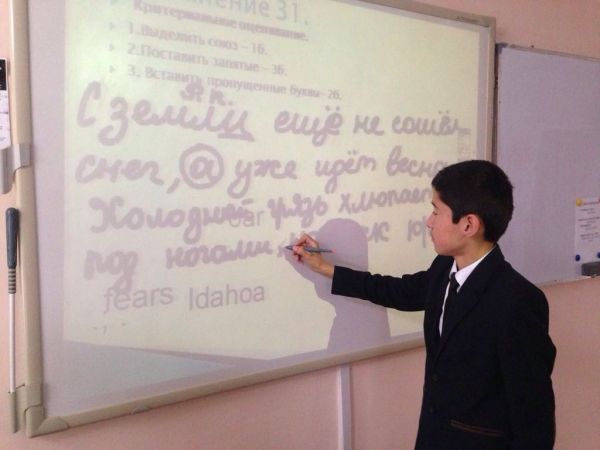 нение 31.
Критериальное оценивание.
1.Выделить союз – 1б.
2.Поставить запятые – 3б.
3. Вставить пропущенные буквы– 2б.
С земли ещё не сошёл
снег, а уже идёт весна
Холодная грязь хлюпает
ear
под ногами,
fears Idahoa